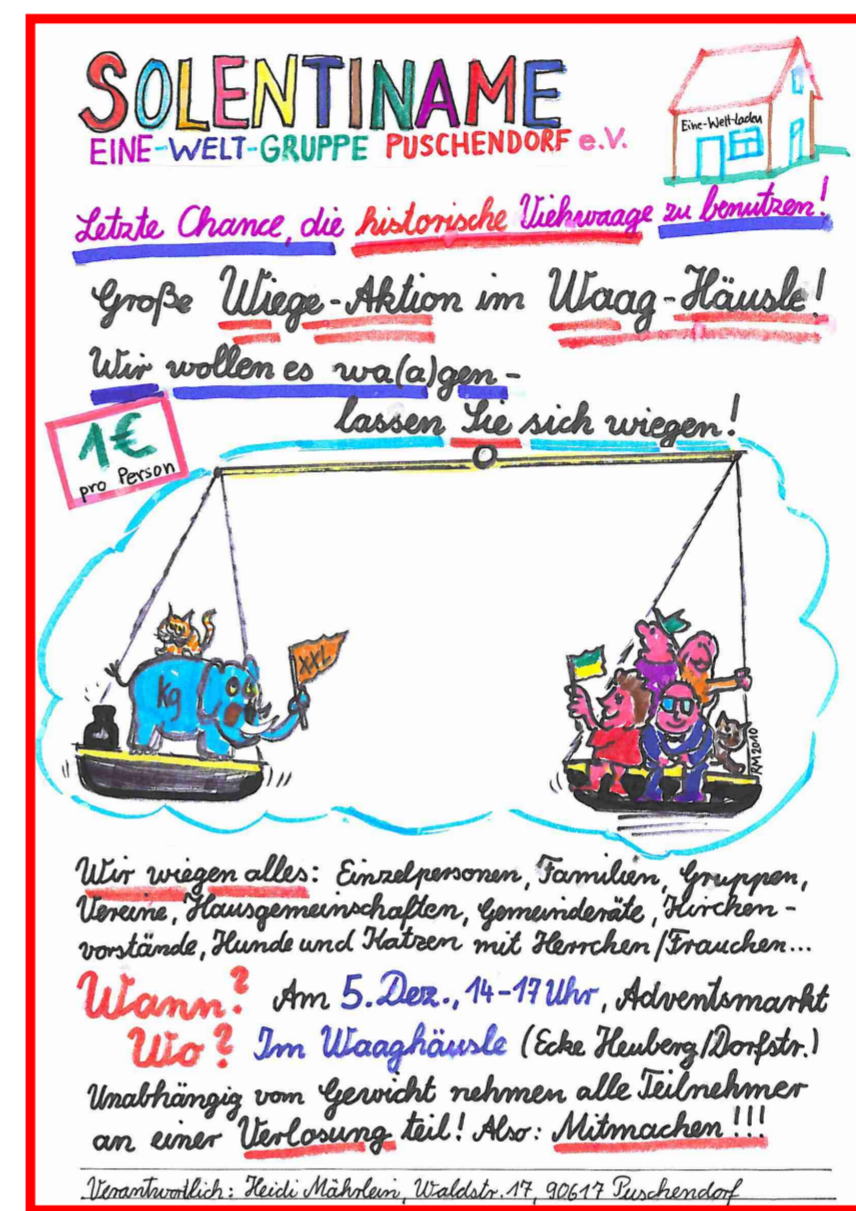 SOLENTINAME
EINE-WELT-GRUPPE PUSCHENDORF e.V.
Eine-Welt-Laden
Letzte Chance, die historische Viehwaage zu benutzen!
Große Wiege-Aktion im Waag-Häusle!
Wir wollen es wa(a)gen-
lassen Sie sich wiegen!
1€
pro Person
kg
XXL
RM2010
Wir wiegen alles: Einzelpersonen, Familien, Gruppen,
Vereine, Hausgemeinschaften, Gemeinderäte, Kirchen-
vorstände, Hunde und Katzen mit Herrchen/Frauchen...
Wann? Am 5. Dez., 14-17 Uhr, Adventsmarkt
Wo? Im Waaghäusle (Ecke Heuberg/Dorfstr.)
Unabhängig vom Gewicht nehmen alle Teilnehmer
an einer Verlosung teil! Also: Mitmachen!!!
Verantwortlich: Heidi Mährlein, Waldstr. 17, 90617 Puschendorf